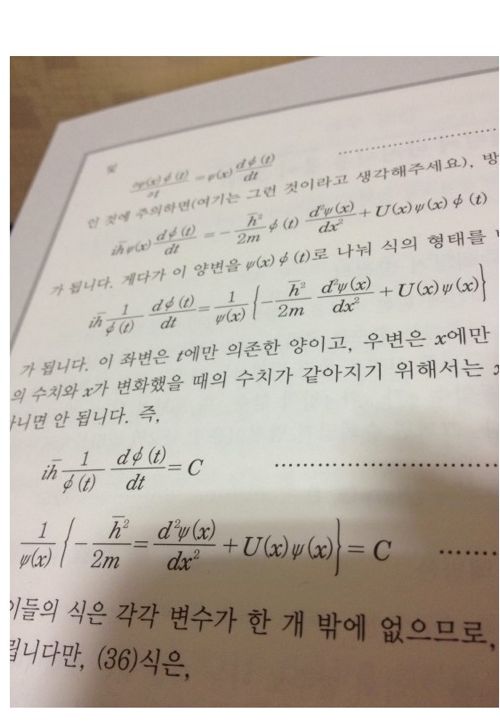 및
∂ψ(x)ϕ(t)/∂t = ψ(x) dϕ(t)/dt ……………
인 것에 주의하면(여기는 그런 것이라고 생각해주세요), 방
iħψ(x) dϕ(t)/dt = − ħ²/2m ϕ(t) d²ψ(x)/dx² + U(x)ψ(x)ϕ(t)
가 됩니다. 게다가 이 양변을 ψ(x)ϕ(t)로 나눠 식의 형태를
iħ 1/ϕ(t) dϕ(t)/dt = 1/ψ(x) {− ħ²/2m d²ψ(x)/dx² + U(x)ψ(x)}
가 됩니다. 이 좌변은 t에만 의존한 양이고, 우변은 x에만
의 수치와 x가 변화했을 때의 수치가 같아지기 위해서는
니면 안 됩니다. 즉,
iħ 1/ϕ(t) dϕ(t)/dt = C ……………
1/ψ(x) {− ħ²/2m = d²ψ(x)/dx² + U(x)ψ(x)} = C ……
이들의 식은 각각 변수가 한 개 밖에 없으므로,
립니다만, (36)식은,